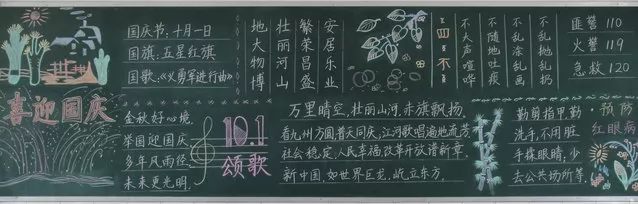 喜迎国庆
国庆节:十月一日
国旗:五星红旗
国歌:《义勇军进行曲》
地大物博
壮丽河山
繁荣昌盛
安居乐业
四不
不大声喧哗
不随地吐痰
不乱涂乱画
不乱抛乱扔
匪警110
火警119
急救120
金秋好心境
举国迎国庆
多年风雨径
未来更光明
10.1
颂歌
万里晴空,壮丽山河,赤旗飘扬,
看九州方圆,普天同庆,江河歌唱遍地流芳
社会稳定,人民幸福,改革开放谱新章,
新中国,如世界巨龙,屹立东方
勤剪指甲勤
洗手,不用脏
手揉眼睛,少
去公共场所等。
预防
红眼病